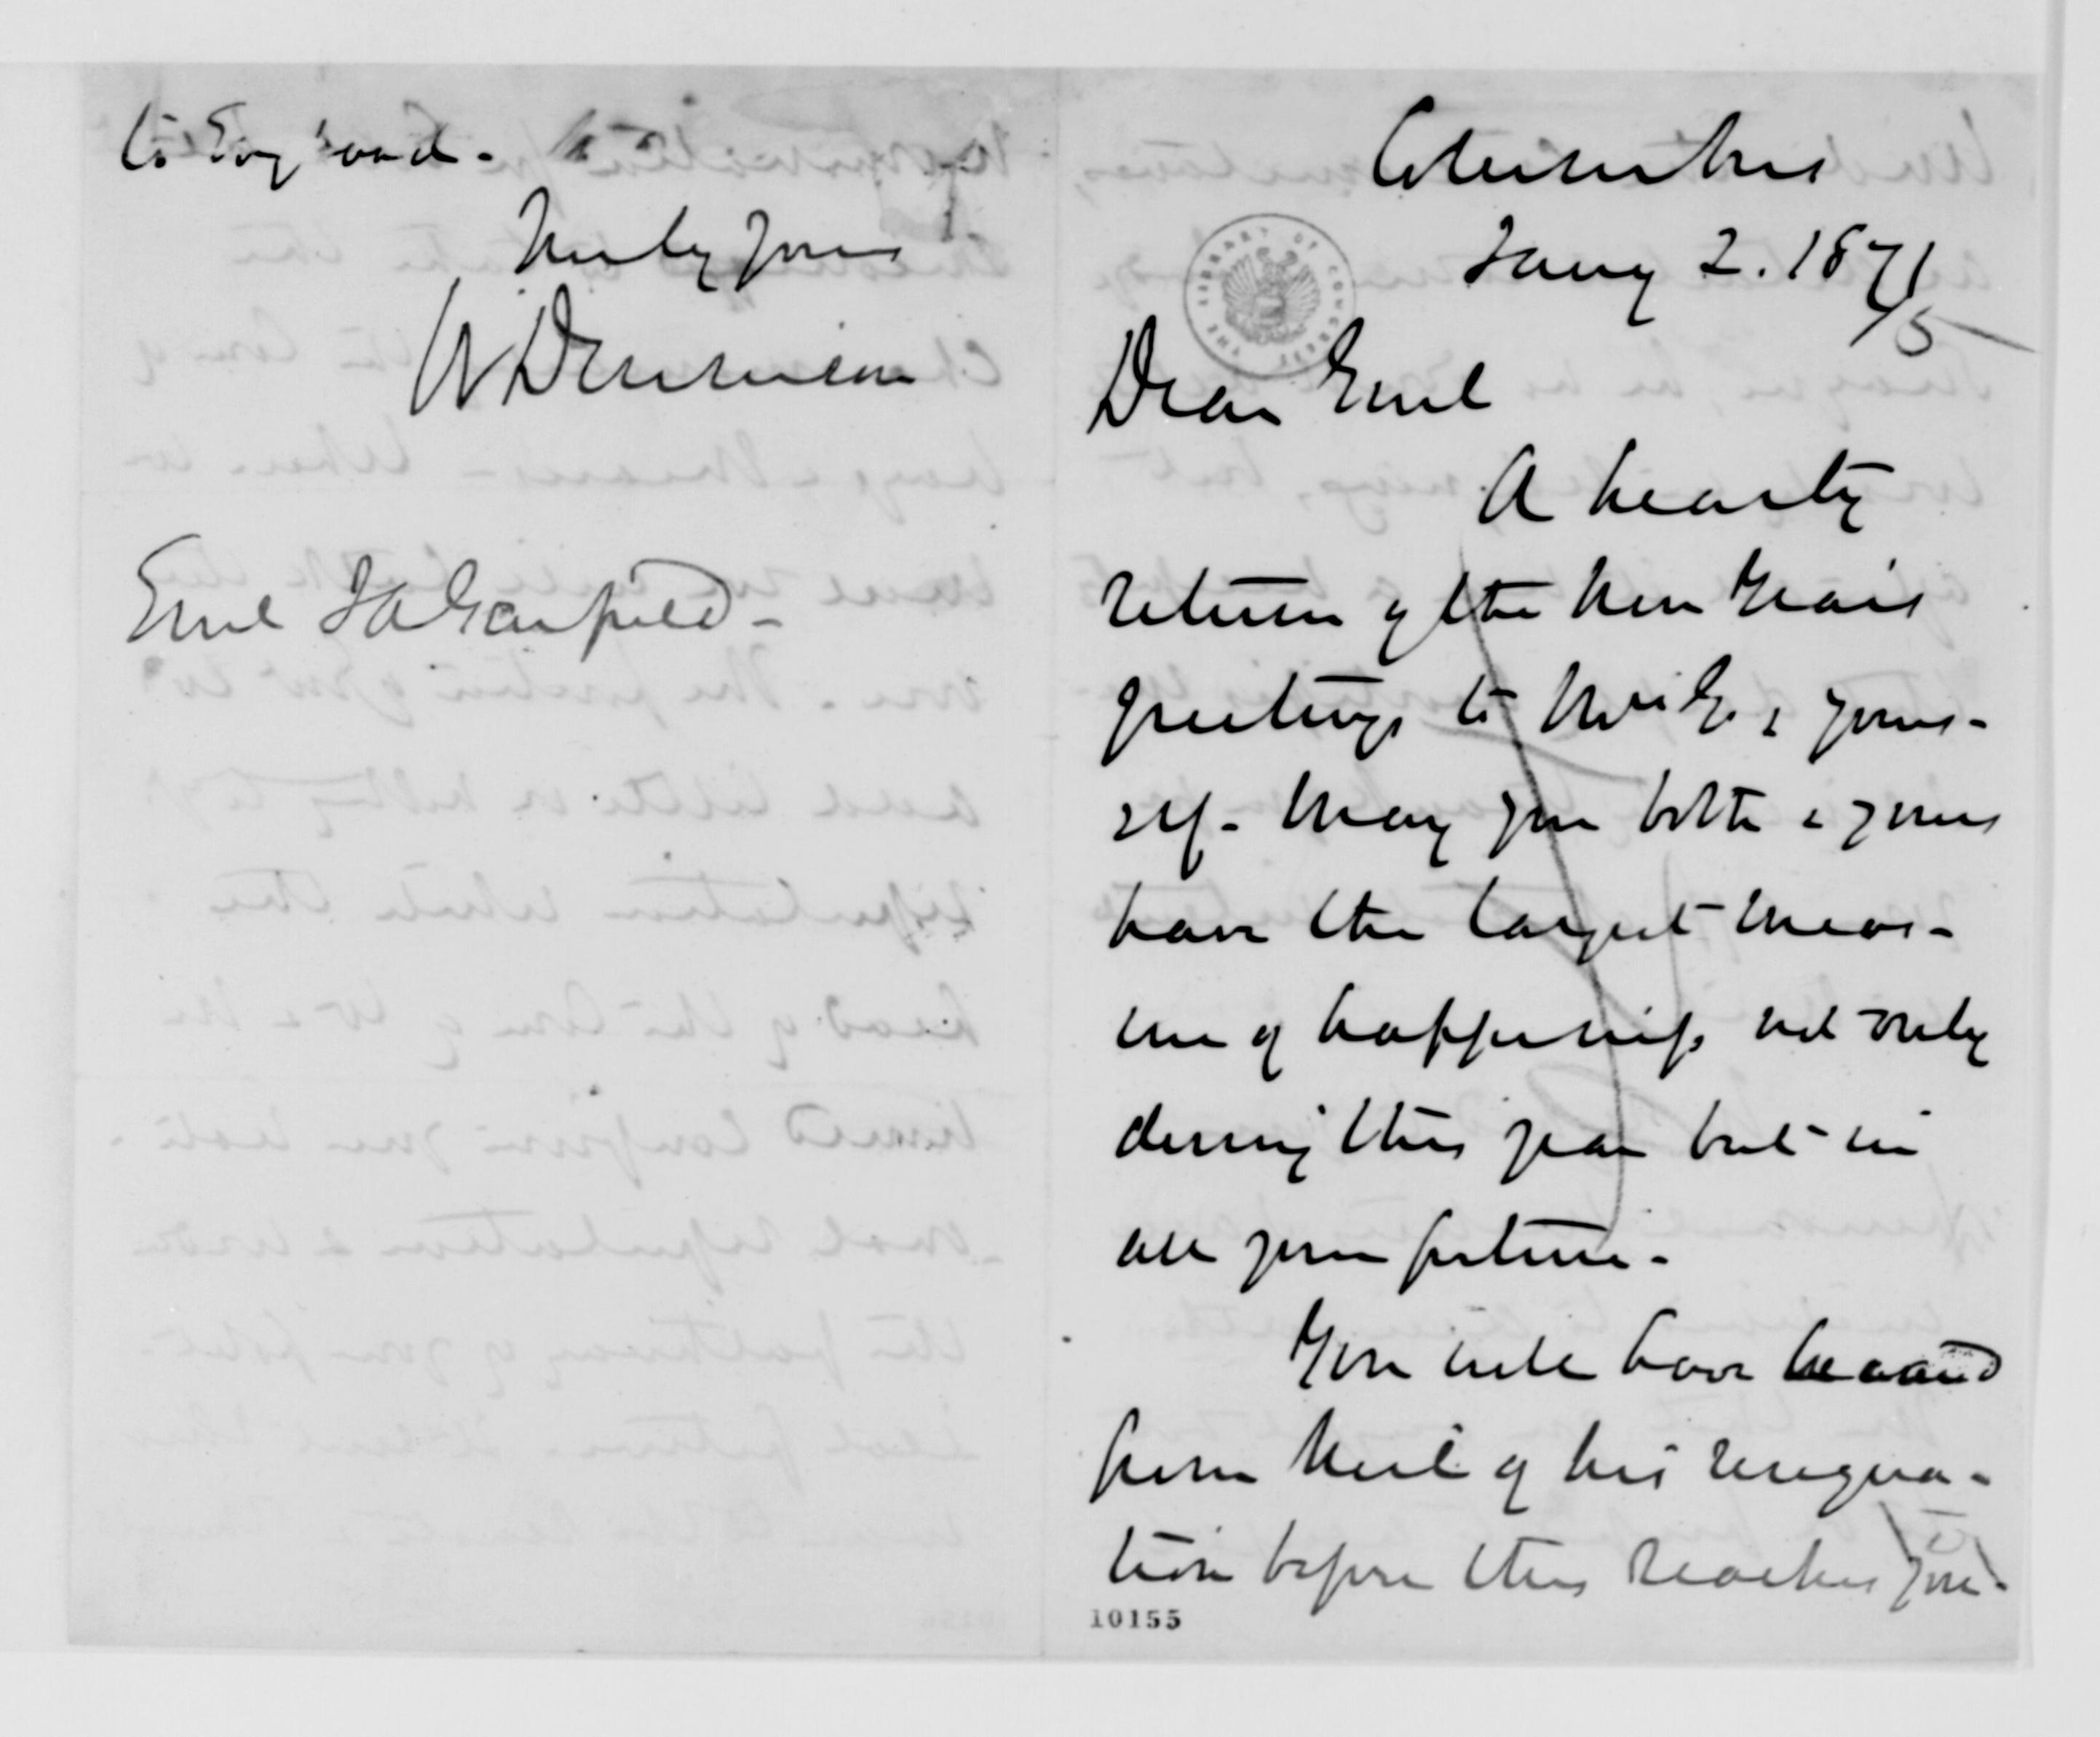 to England.
Truly yours
W Dennison
Genl J A Garfield -
Columbus
Jany 2. 1871
/5
THE LIBRARY OF CONGRESS
Dear Genl
A hearty
return of the New Years
greetings to Mrs G. & your-
self. May you both & yours
have the largest meas-
ure of happiness not only
during this year but in
all your future -
You will have heard
from Neil of his resigna-
tion before this reaches you.
10155